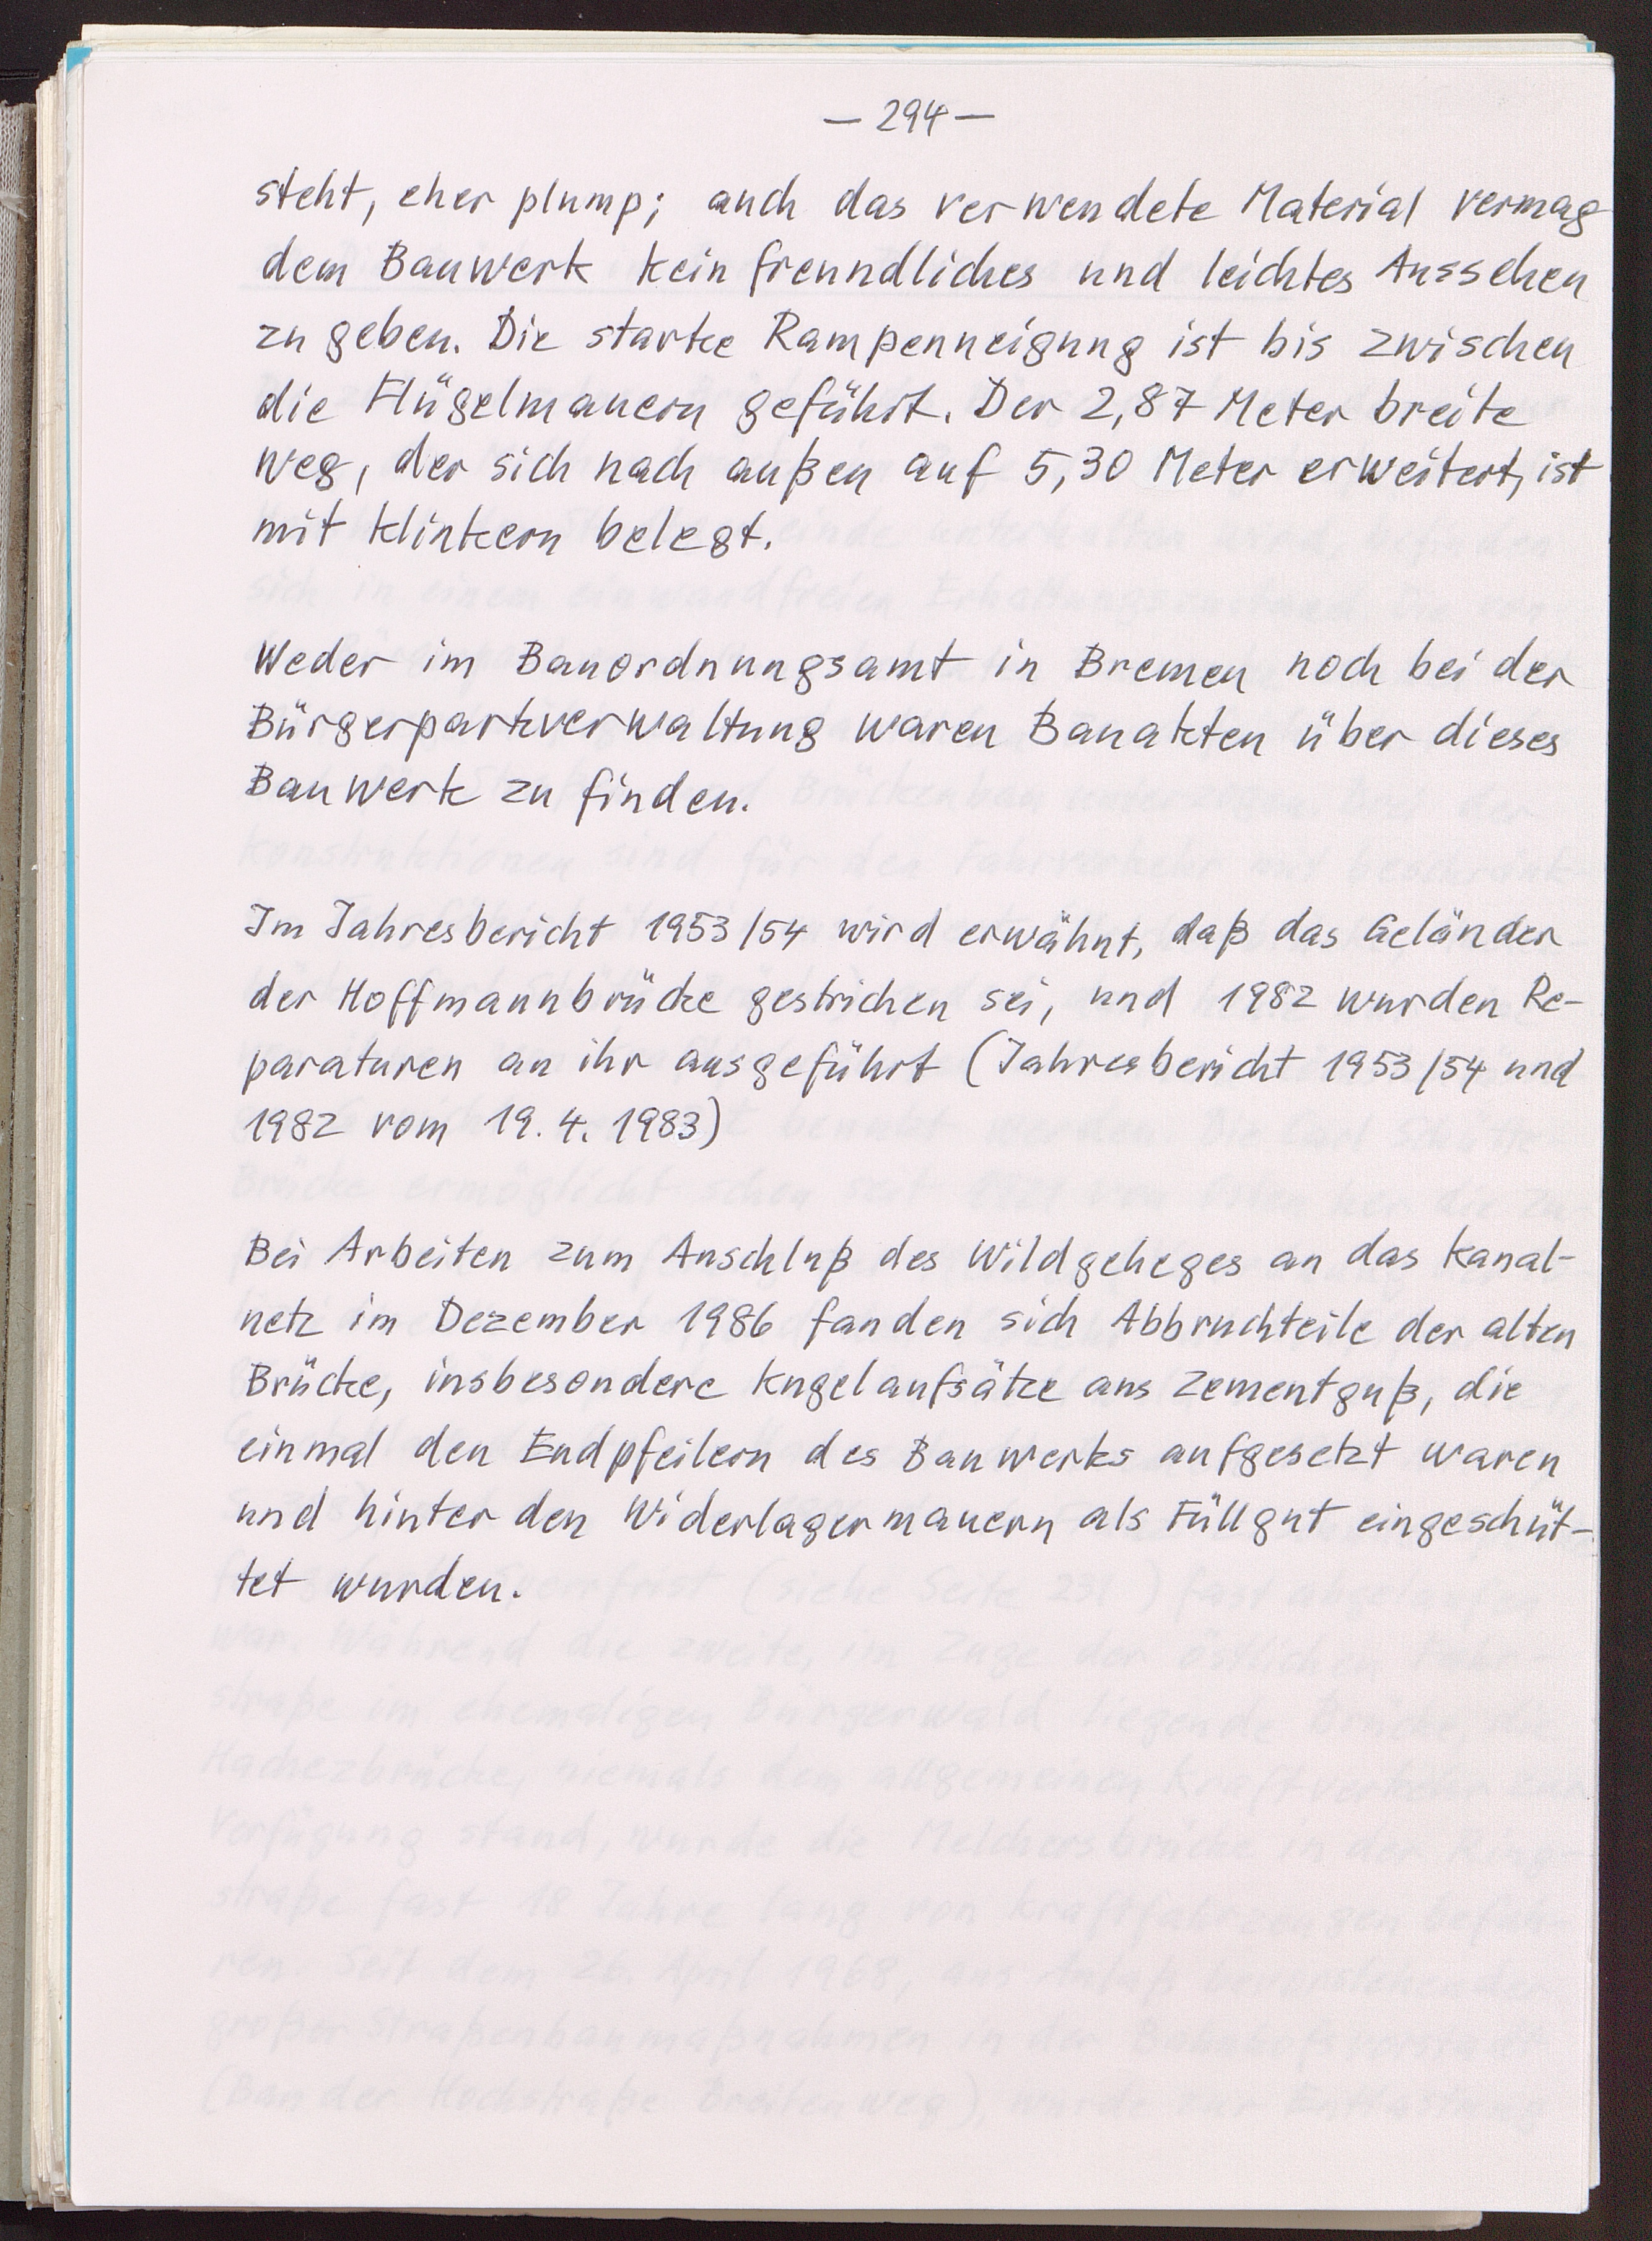 — 294 —
steht, eher plump; auch das verwendete Material vermag
dem Bauwerk kein freundliches und leichtes Aussehen
zu geben. Die starke Rampenneigung ist bis zwischen
die Flügelmauern geführt. Der 2,87 Meter breite
Weg, der sich nach außen auf 5,30 Meter erweitert, ist
mit Klinkern belegt.
Weder im Bauordnungsamt in Bremen noch bei der
Bürgerparkverwaltung waren Bauakten über dieses
Bauwerk zu finden.
Im Jahresbericht 1953/54 wird erwähnt, daß das Geländer
der Hoffmannbrücke gestrichen sei, und 1982 wurden Re-
paraturen an ihr ausgeführt (Jahresbericht 1953/54 und
1982 vom 19. 4. 1983)
Bei Arbeiten zum Anschluß des Wildgeheges an das Kanal-
netz im Dezember 1986 fanden sich Abbruchteile der alten
Brücke, insbesondere Kugelaufsätze aus Zementguß, die
einmal den Endpfeilern des Bauwerks aufgesetzt waren
und hinter den Widerlagermauern als Füllgut eingeschüt-
tet wurden.